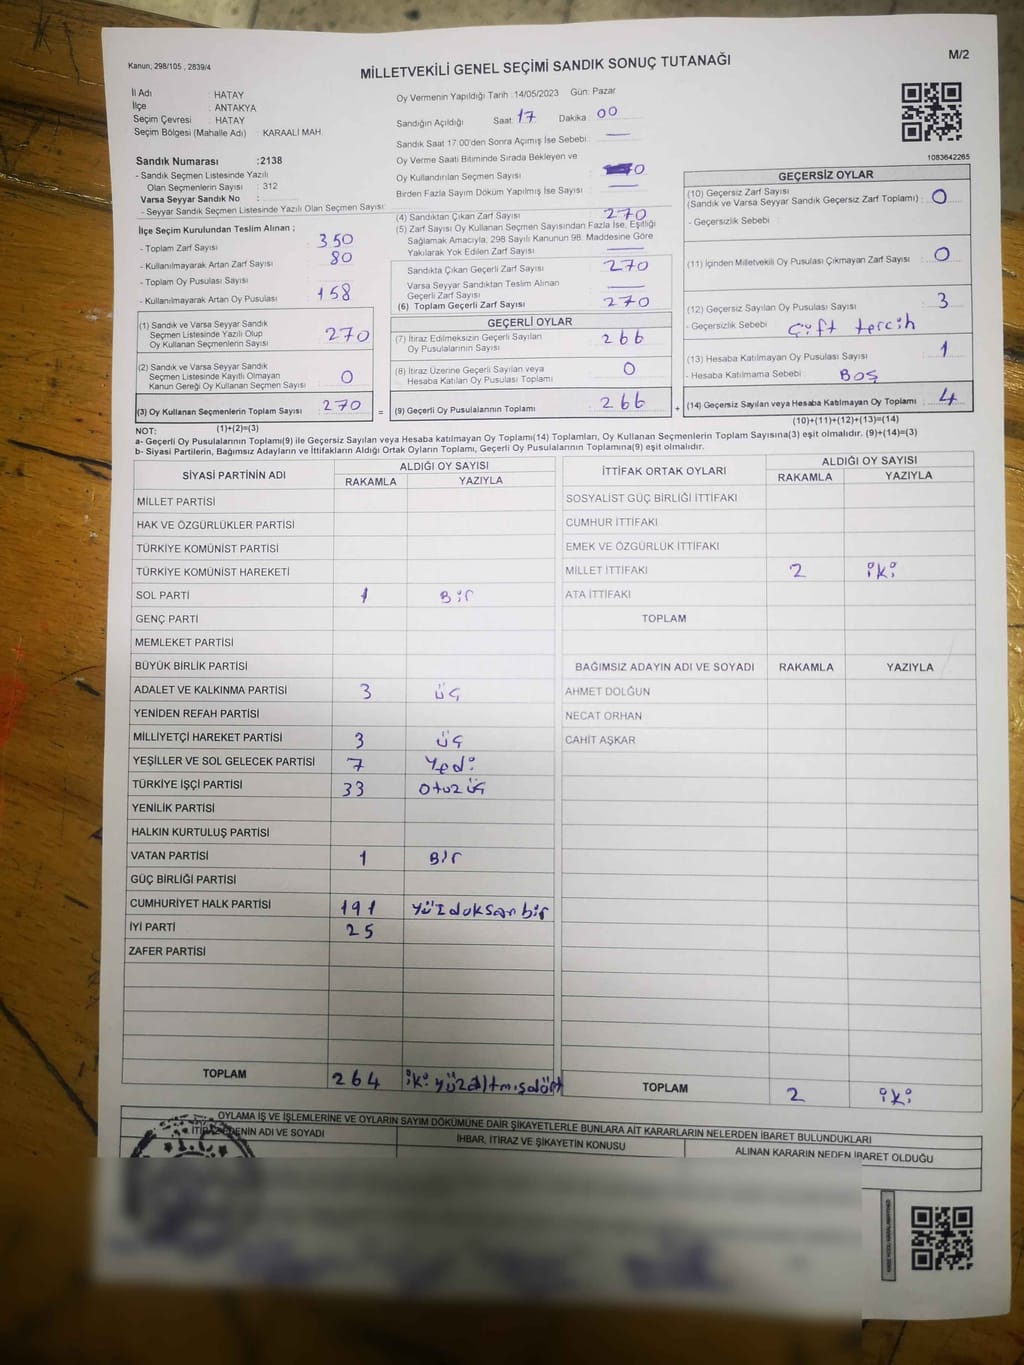 Kanun; 298/105 , 2839/4
MİLLETVEKİLİ GENEL SEÇİMİ SANDIK SONUÇ TUTANAĞI
M/2
İl Adı : HATAY
İlçe : ANTAKYA
Seçim Çevresi : HATAY
Seçim Bölgesi (Mahalle Adı) : KARAALİ MAH.
Oy Vermenin Yapıldığı Tarih :14/05/2023 Gün: Pazar
Sandığın Açıldığı Saat: 17 Dakika: 00
Sandık Saat 17:00'den Sonra Açımış İse Sebebi : —
Oy Verme Saati Bitiminde Sırada Bekleyen ve
Oy Kullandırılan Seçmen Sayısı : 0
Birden Fazla Sayım Döküm Yapılmış İse Sayısı : —
1083642265
Sandık Numarası :2138
- Sandık Seçmen Listesinde Yazılı
Olan Seçmenlerin Sayısı : 312
Varsa Seyyar Sandık No :
- Seyyar Sandık Seçmen Listesinde Yazılı Olan Seçmen Sayısı:
İlçe Seçim Kurulundan Teslim Alınan ;
- Toplam Zarf Sayısı : 350
- Kullanılmayarak Artan Zarf Sayısı : 80
- Toplam Oy Pusulası Sayısı :
- Kullanılmayarak Artan Oy Pusulası : 158
(1) Sandık ve Varsa Seyyar Sandık
Seçmen Listesinde Yazılı Olup
Oy Kullanan Seçmenlerin Sayısı : 270
(2) Sandık ve Varsa Seyyar Sandık
Seçmen Listesinde Kayıtlı Olmayan
Kanun Gereği Oy Kullanan Seçmen Sayısı : 0
(3) Oy Kullanan Seçmenlerin Toplam Sayısı : 270 =
(1)+(2)=(3)
(4) Sandıktan Çıkan Zarf Sayısı : 270
(5) Zarf Sayısı Oy Kullanan Seçmen Sayısından Fazla İse, Eşitliği
Sağlamak Amacıyla, 298 Sayılı Kanunun 98. Maddesine Göre
Yakılarak Yok Edilen Zarf Sayısı : —
Sandıkta Çıkan Geçerli Zarf Sayısı : 270
Varsa Seyyar Sandıktan Teslim Alınan
Geçerli Zarf Sayısı : —
(6) Toplam Geçerli Zarf Sayısı : 270
GEÇERLİ OYLAR
(7) İtiraz Edilmeksizin Geçerli Sayılan
Oy Pusulalarının Sayısı : 266
(8) İtiraz Üzerine Geçerli Sayılan veya
Hesaba Katılan Oy Pusulası Toplamı : 0
(9) Geçerli Oy Pusulalarının Toplamı : 266 +
GEÇERSİZ OYLAR
(10) Geçersiz Zarf Sayısı
(Sandık ve Varsa Seyyar Sandık Geçersiz Zarf Toplamı) : 0
- Geçersizlik Sebebi :
(11) İçinden Milletvekili Oy Pusulası Çıkmayan Zarf Sayısı : 0
(12) Geçersiz Sayılan Oy Pusulası Sayısı : 3
- Geçersizlik Sebebi : Çift tercih
(13) Hesaba Katılmayan Oy Pusulası Sayısı : 1
- Hesaba Katılmama Sebebi : Boş
(14) Geçersiz Sayılan veya Hesaba Katılmayan Oy Toplamı : 4
(10)+(11)+(12)+(13)=(14)
NOT:
a- Geçerli Oy Pusulalarının Toplamı(9) ile Geçersiz Sayılan veya Hesaba katılmayan Oy Toplamı(14) Toplamları, Oy Kullanan Seçmenlerin Toplam Sayısına(3) eşit olmalıdır. (9)+(14)=(3)
b- Siyasi Partilerin, Bağımsız Adayların ve İttifakların Aldığı Ortak Oyların Toplamı, Geçerli Oy Pusulalarının Toplamına(9) eşit olmalıdır.
SİYASİ PARTİNİN ADI
ALDIĞI OY SAYISI
RAKAMLA YAZIYLA
MİLLET PARTİSİ
HAK VE ÖZGÜRLÜKLER PARTİSİ
TÜRKİYE KOMÜNİST PARTİSİ
TÜRKİYE KOMÜNİST HAREKETİ
SOL PARTİ 1 Bir
GENÇ PARTİ
MEMLEKET PARTİSİ
BÜYÜK BİRLİK PARTİSİ
ADALET VE KALKINMA PARTİSİ 3 üç
YENİDEN REFAH PARTİSİ
MİLLİYETÇİ HAREKET PARTİSİ 3 üç
YEŞİLLER VE SOL GELECEK PARTİSİ 7 Yedi
TÜRKİYE İŞÇİ PARTİSİ 33 otuz üç
YENİLİK PARTİSİ
HALKIN KURTULUŞ PARTİSİ
VATAN PARTİSİ 1 Bir
GÜÇ BİRLİĞİ PARTİSİ
CUMHURİYET HALK PARTİSİ 191 yüzdoksan bir
İYİ PARTİ 25
ZAFER PARTİSİ
TOPLAM 264 iki yüz altmışdört
İTTİFAK ORTAK OYLARI
ALDIĞI OY SAYISI
RAKAMLA YAZIYLA
SOSYALİST GÜÇ BİRLİĞİ İTTİFAKI
CUMHUR İTTİFAKI
EMEK VE ÖZGÜRLÜK İTTİFAKI
MİLLET İTTİFAKI 2 iki
ATA İTTİFAKI
TOPLAM
BAĞIMSIZ ADAYIN ADI VE SOYADI RAKAMLA YAZIYLA
AHMET DOLĞUN
NECAT ORHAN
CAHİT AŞKAR
TOPLAM 2 iki
OYLAMA İŞ VE İŞLEMLERİNE VE OYLARIN SAYIM DÖKÜMÜNE DAİR ŞİKAYETLERLE BUNLARA AİT KARARLARIN NELERDEN İBARET BULUNDUKLARI
İTİRAZ EDENİN ADI VE SOYADI
İHBAR, İTİRAZ VE ŞİKAYETİN KONUSU
ALINAN KARARIN NEDEN İBARET OLDUĞU
T.C.